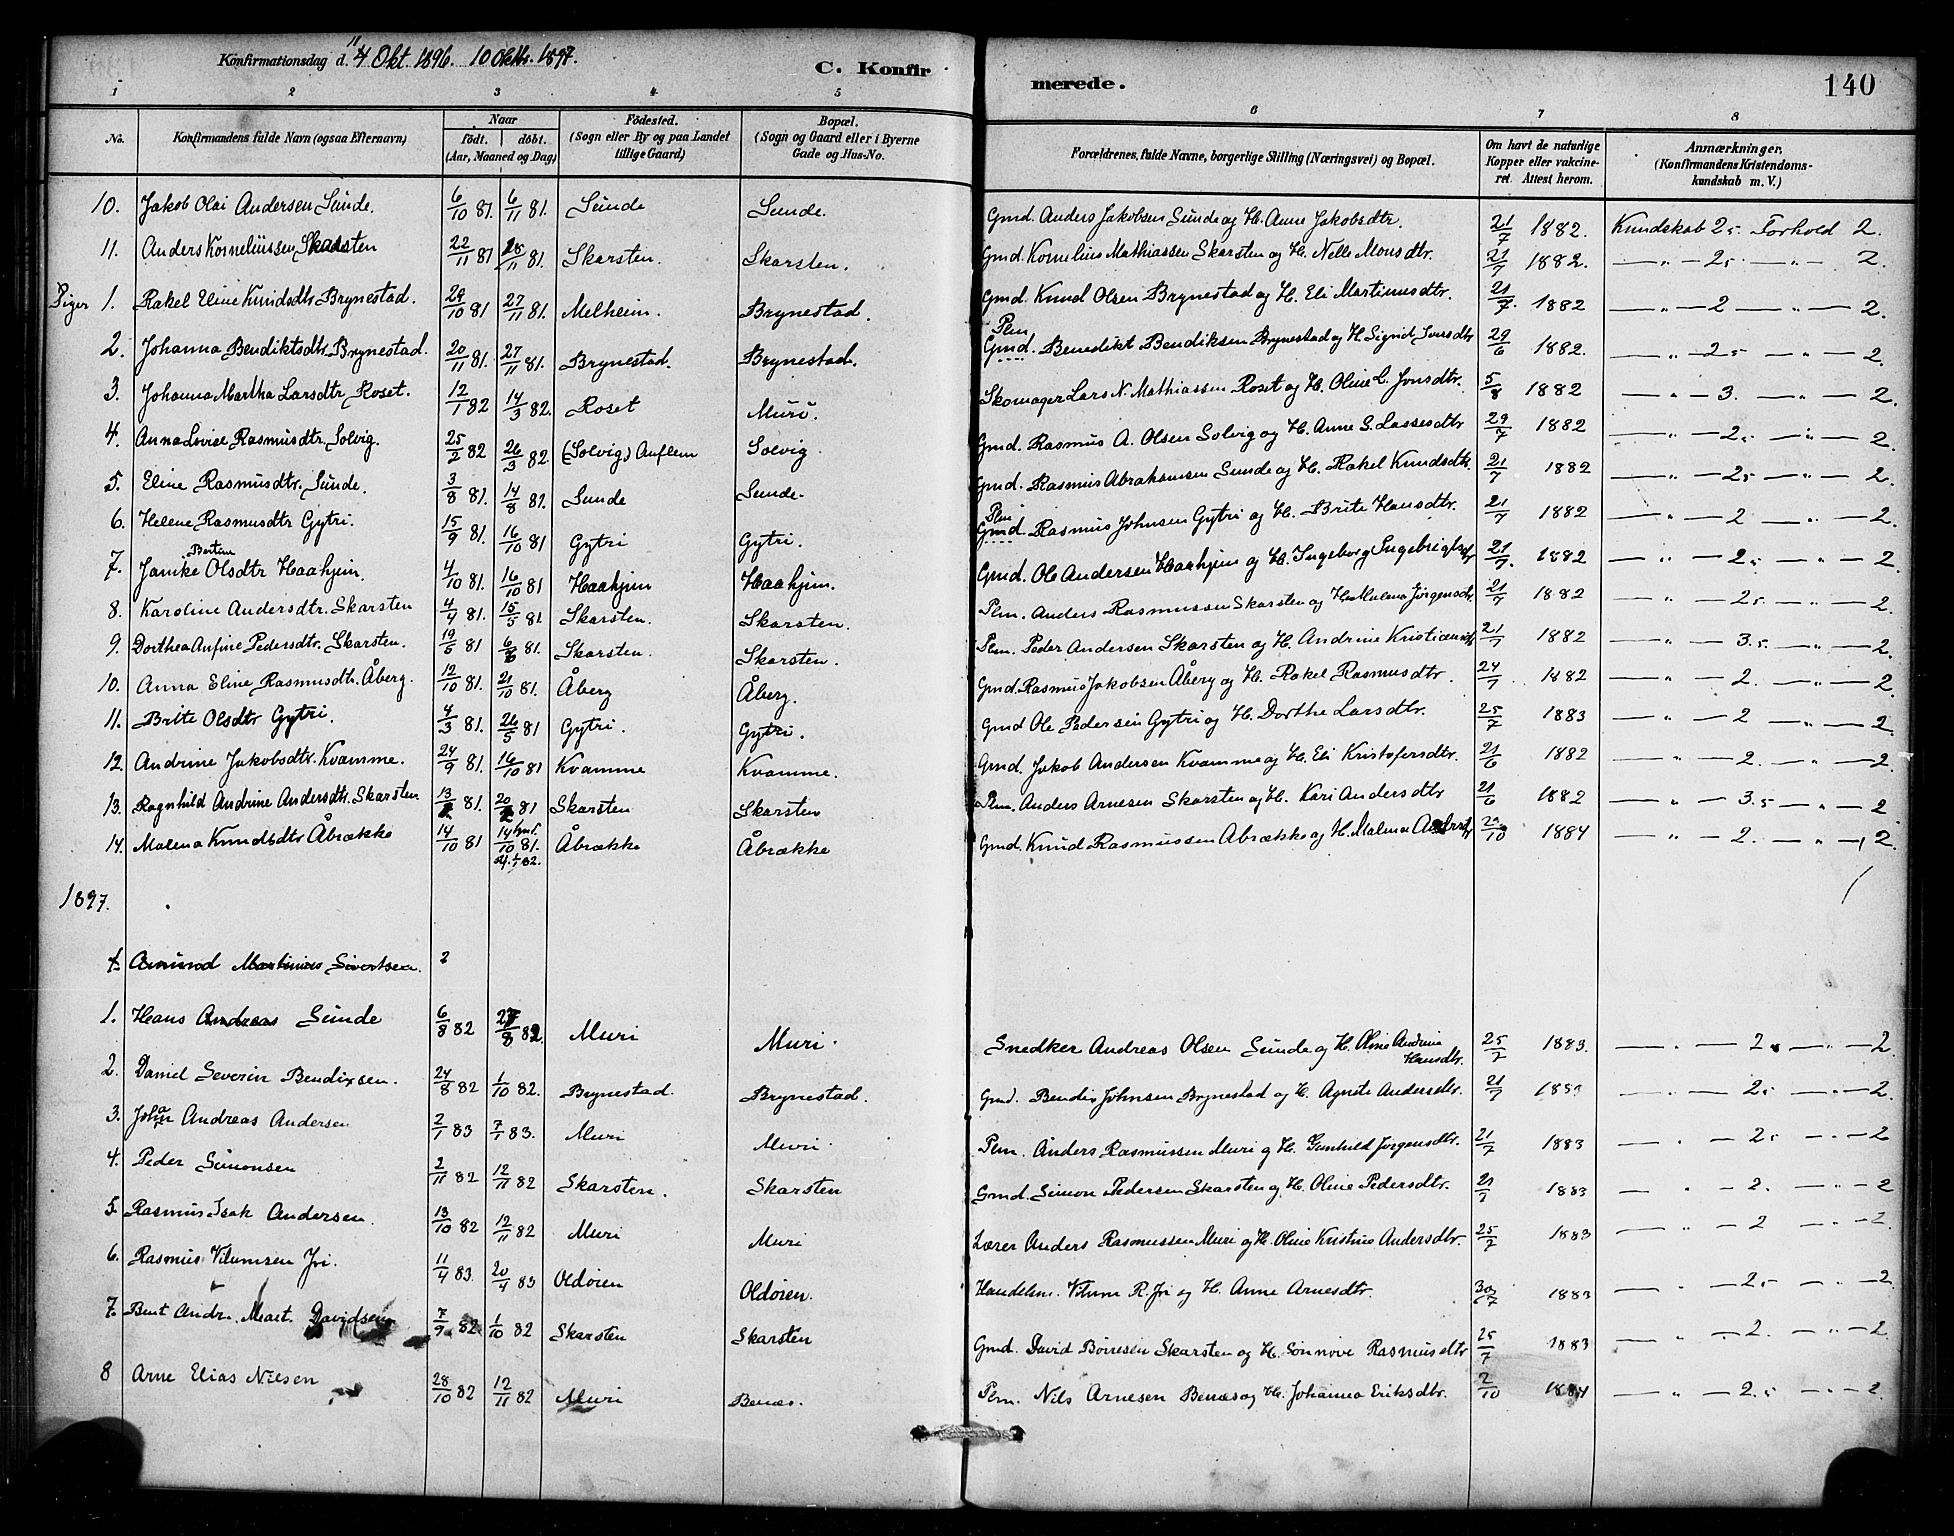 Konfirmationsdag d. 4 Okt. 1896. 10 Oktbr. 1897.
C. Konfirmerede. 140
1 2 3 4 5 6 7 8
No. Konfirmandens fulde Navn (ogsaa Efternavn) Naar født. døbt. (Aar, Maaned og Dag) Födested. (Sogn eller By og paa Landet tillige Gaard) Bopæl. (Sogn og Gaard eller i Byerne Gade og Hus-No. Forældrenes, fulde Navne, borgerlige Stilling (Næringsvei) og Bopæl. Om havt de naturlige Kopper eller vakcineret. Attest herom. Anmærkninger. (Konfirmandens Kristendomskundskab m. V.)
10. Jakob Olai Andersen Sunde. 6/10 81. 6/11 81. Sunde Sunde. Gmd. Anders Jakobsen Sunde og H. Anne Jakobsdtr. 21/7 1882. Kundskab 2,5 Forhold 2.
11. Anders Korneliussen Skarsten 22/11 81 28/11 81. Skarsten. Skarsten. Gmd. Kornelius Mathiassen Skarsten og H. Nelle Monsdtr. 21/7 1882. — " — 2,5 — " — 2.
Piger 1. Rakel Eline Knudsdtr Brynestad. 29/10 81 27/11 81. Melheim. Brynestad. Gmd. Knud Olsen Brynestad og H. Eli Martinusdtr. 21/7. 1882 — " — 2 — " — 2.
2. Johanna Bendiktsdtr. Brynestad. 20/11 81. 27/11 81. Brynestad. Brynestad. Plm Gmd. Benedikt Bendiksen Brynestad og H. Signd Iversdtr 29/6 1882. — " — 2,5 — " — 2.
3. Johanna Martha Larsdtr, Roset. 12/1 82 14/3 82. Roset Muri. Skomager Lars N. Mathiassen Roset og H. Oline L. Jonsdtr. 5/8 1882 — " — 3. — " — 2.
4. Anna Lovise Rasmusdtr. Solvig. 25/2 82 26/3 82. (Solvig) Auflem Solvig. Gmd. Rasmus A. Olsen Solvig og H. Anne S. Lassesdtr 29/7 1882 — " — 2,5 — " — 2.
5. Eline Rasmusdtr. Sunde. 3/8 81. 14/8 81. Sunde Sunde. Gmd. Rasmus Abrahamsen Sunde og H. Rakel Knudsdtr. 21/7 1882 — " — 2,5 — " — 2.
6. Helene Rasmusdtr Gytri. 15/9 81. 16/10 81 Gytri Gytri. Plm Gmd. Rasmus Johnsen Gytri og H. Brite Hansdtr. 21/7 1882 — " — 2 — " — 2.
7. Janike Bertine Olsdtr Haahjem. 4/10 81. 16/10 81 Haahjem Haahjem. Gmd. Ole Andersen Haahjem og H. Ingeborg Ingebrigtsdtr 21/7. 1882 — " — 2,5 — " — 2.
8. Karoline Andersdtr. Skarsten 4/4 81. 15/5 81. Skarsten. Skarsten. Plm. Anders Rasmussen Skarsten og H. Malena Jörgensdtr. 21/7 1882 — " — 2,5 — " — 2.
9. Dorthea Anfine Pedersdtr. Skarsten. 19/5 81 6/6 81. Skarsten. Skarsten. Plm. Peder Andersen Skarsten og H. Andrine Kristiansdtr 21/7 1882 — " — 3.5 — " — 2.
10. Anna Eline Rasmusdtr. Åberg. 12/10 81. 21/10 81. Åberg Åberg. Gmd. Rasmus Jakobsen Åberg og H. Rakel Rasmusdtr. 24/7 1882 — " — 2. — " — 2.
11. Brite Olsdtr Gytri. 4/3 81. 26/5 81 Gytri. Gytri. Gmd Ole Pedersen Gytri og H. Dorthe Larsdtr. 25/7 1883 — " — 2 — " — 2.
12. Andrine Jakobsdtr. Kvamme. 24/9 81. 16/10 81 Kvamme Kvamme. Gmd. Jakob Andersen Kvamme og H. Eli Kristofersdtr. 21/6 1882 — " — 2. — " — 2.
13. Ragnhild Andrine Andersdtr. Skarsten. 13/ 81. 20/ 81 Skarsten Skarsten Plm. Anders Arnesen Skarsten og H. Kari Andersdtr 21/6 1882 — " — 3.5 — " — 2
14. Malena Knudsdtr Åbrække 14/10 81 14/10 81. Åbrække Åbrække Gmd. Knud Rasmussen Abrække og H. Malena 29/10 1884 — " — 2. — " — 2.
1897.
1. Amund Martinius Sivertsen. 2
1. Hans Andreas Sunde 6/8 82 27/8 82. Muri Muri. Snedker Andreas Olsen Sunde og H. Oline Andrine Hansdtr. 25/7 1883. — " — 2. — " — 2
2. Daniel Severin Bendixsen. 24/8 82 1/10 82. Brynestad. Brynestad. Gmd. Bendix Johnsen Brynestad og H. Agnete Andersdtr. 21/7 1883 — " — 2,5 — " — 2
3. Johan Andreas Andersen 2/1 83 7/1 83. Muri Muri. Plm. Anders Rasmussen Muri og H. Gunhild Jorgensdtr. 21/7 1883 — " — 2,5 — " — 2
4. Peder Simonsen 2/11 82 12/11 82 Skarsten. Skarsten Gmd. Simon Pedersen Skarsten og H. Oline Pedersdtr. 21/7 1883 — " — 2. — " — 2
5. Rasmus Isak Andersen. 13/10 82 12/11 82 Muri Muri Lærer Anders Rasmussen Muri og H. Oline Kristine Andersdtr. 25/7 1883 — " — 2 — " — 2.
6. Rasmus Vilumsen Jri. 11/4 83. 20/4 83 Oldören Oldören. Handelsm. Vilum R. Jri og H. Anne Arnesdtr. 30/7 1883 — " — 2,5 — " — 2
7. Bent Andr. Mart. Davidsen 7/9 82 1/10 82 Skarsten Skarsten Gmd. David Börresen Skarsten og H. Sønnøve Rasmusdtr 25/7 1883 — " — 2. — " — 2.
8 Arne Elias Nilsen 28/10 82 12/11 82 Muri Benæs. Plm. Nils Arnesen Benæs og H. Johanna Eriksdtr. 2/10 1884 — " — 2.5 — " — 2.